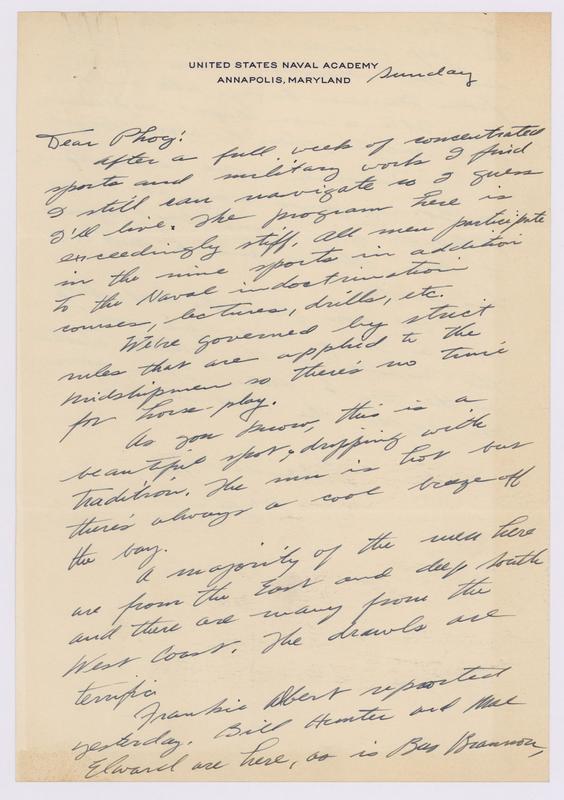 UNITED STATES NAVAL ACADEMY
ANNAPOLIS, MARYLAND
Sunday
Dear Phog:
After a full week of concentrated
sports and military work I find
I still can navigate so I guess
I'll live. The program here is
exceedingly stiff. All men participate
in the nine sports in addition
to the Naval indoctrination
courses, lectures, drills, etc.
We're governed by strict
rules that are applied to the
midshipmen so there's no time
for horse-play.
As you know, this is a
beautiful spot, dripping with
tradition. The sun is hot but
there's always a cool breeze off
the bay.
A majority of the men here
are from the East and deep South
and there are many from the
West Coast. The drawls are
terrific
Frankie Albert reported
yesterday. Bill Hunter and Mac
Elward are here, as is Bus Brannon,